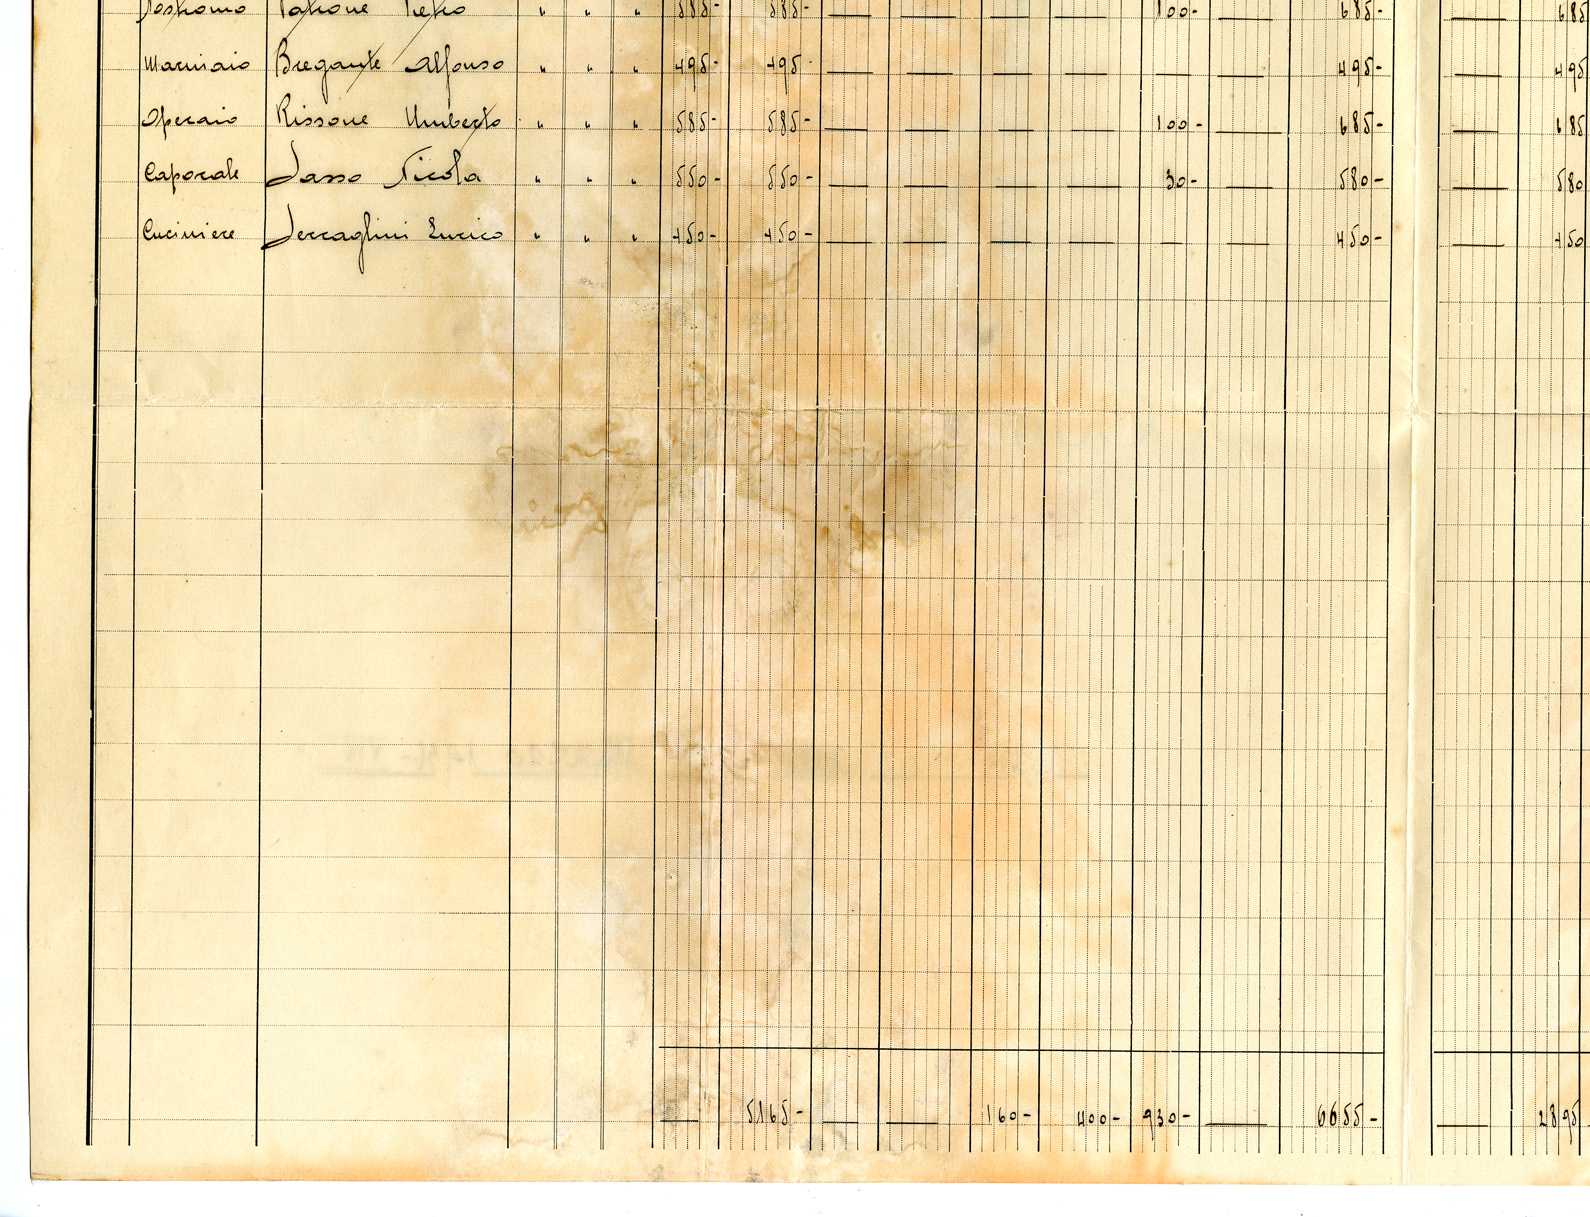 Nostromo Patrone Pietro " " " 585- 585- — — — — 100- — 685- — 685
Marinaio Bregante Alfonso " " " 495- 495- — — — — — — 495- — 495
Operaio Rissone Umberto " " " 585- 585- — — — — 100- — 685- — 685
Caporale Sasso Nicola " " " 550- 550- — — — — 30- — 580- — 580
Cuciniere Serraglini Enrico " " " 450- 450- — — — — — — 450- — 450
— 5165- — — 160- 400- 930- — 6655- — 2895